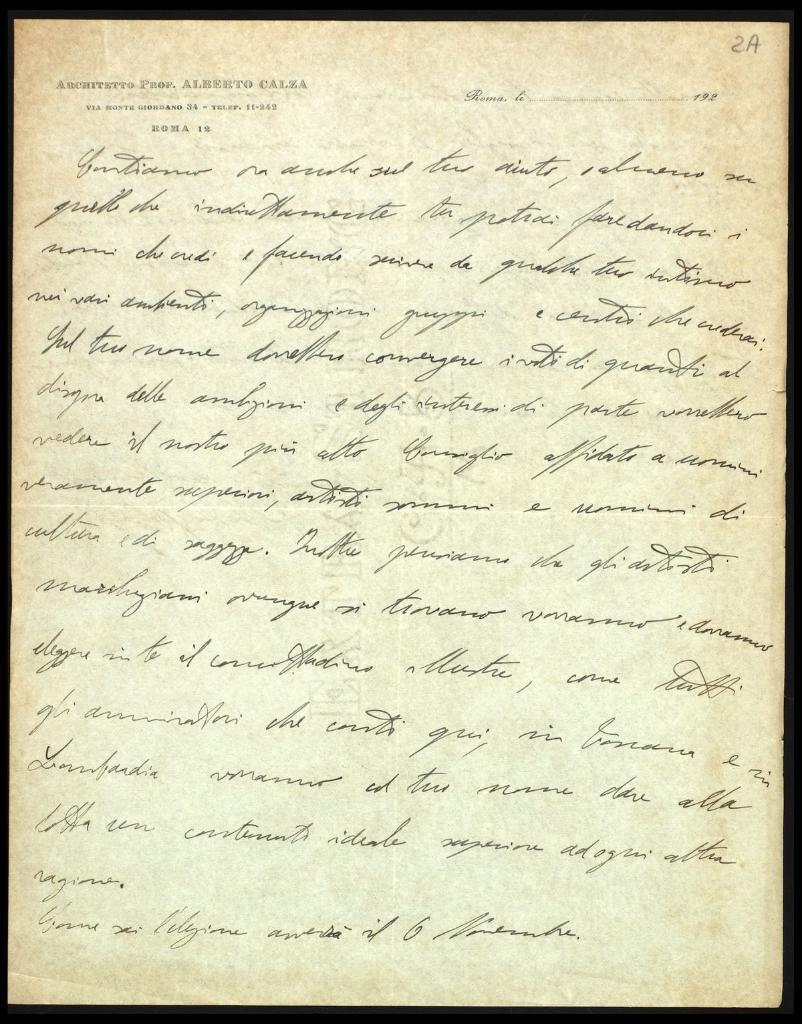 2A
ARCHITETTO PROF. ALBERTO CALZA
VIA MONTE GIORDANO 34 - TELEF. 11-242
ROMA 12
Roma, li 192
Contiamo ora anche sul tuo aiuto, o almeno su
quello che indirettamente tu potrai fare dandoci i
nomi che credi e facendo scrivere da qualche tuo intimo
nei vari ambienti, organizzazioni gruppi e centri che crederai.
Sul tuo nome dovrebbero convergere i voti di quanti al
disopra delle ambizioni e degli interessi di parte vorrebbero
vedere il nostro più alto Consiglio affidato a uomini
veramente superiori, artisti sommi e uomini di
cultura e di saggezza. Inoltre pensiamo che gli artisti
marchigiani ovunque si trovano vorranno e dovranno
eleggere in te il concittadino illustre, come tutti
gli ammiratori che conti qui, in Toscana e in
Lombardia vorranno col tuo nome dare alla
lotta un contenuto ideale superiore ad ogni altra
ragione.
Come sai l'elezione avverrà il 6 Novembre.